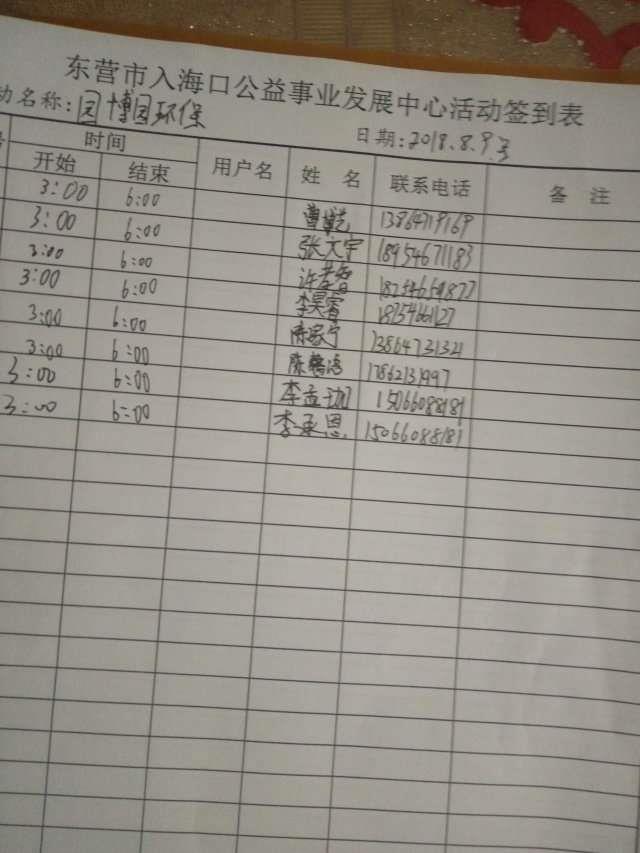 东营市入海口公益事业发展中心活动签到表
动名称:园博园环保
日期:2018.8.9号
号 时间 用户名 姓 名 联系电话 备 注
开始 结束
3:00 6:00 曹 13864719169
3:00 6:00 张文宇 18954671183
3:00 6:00 许 
3:00 6:00 李昊睿
3:00 6:00 陈 宁 13864731321
3:00 6:00 陈 17862131997
3:00 6:00 李孟 15066088181
3:00 6:00 李承恩 15066088181